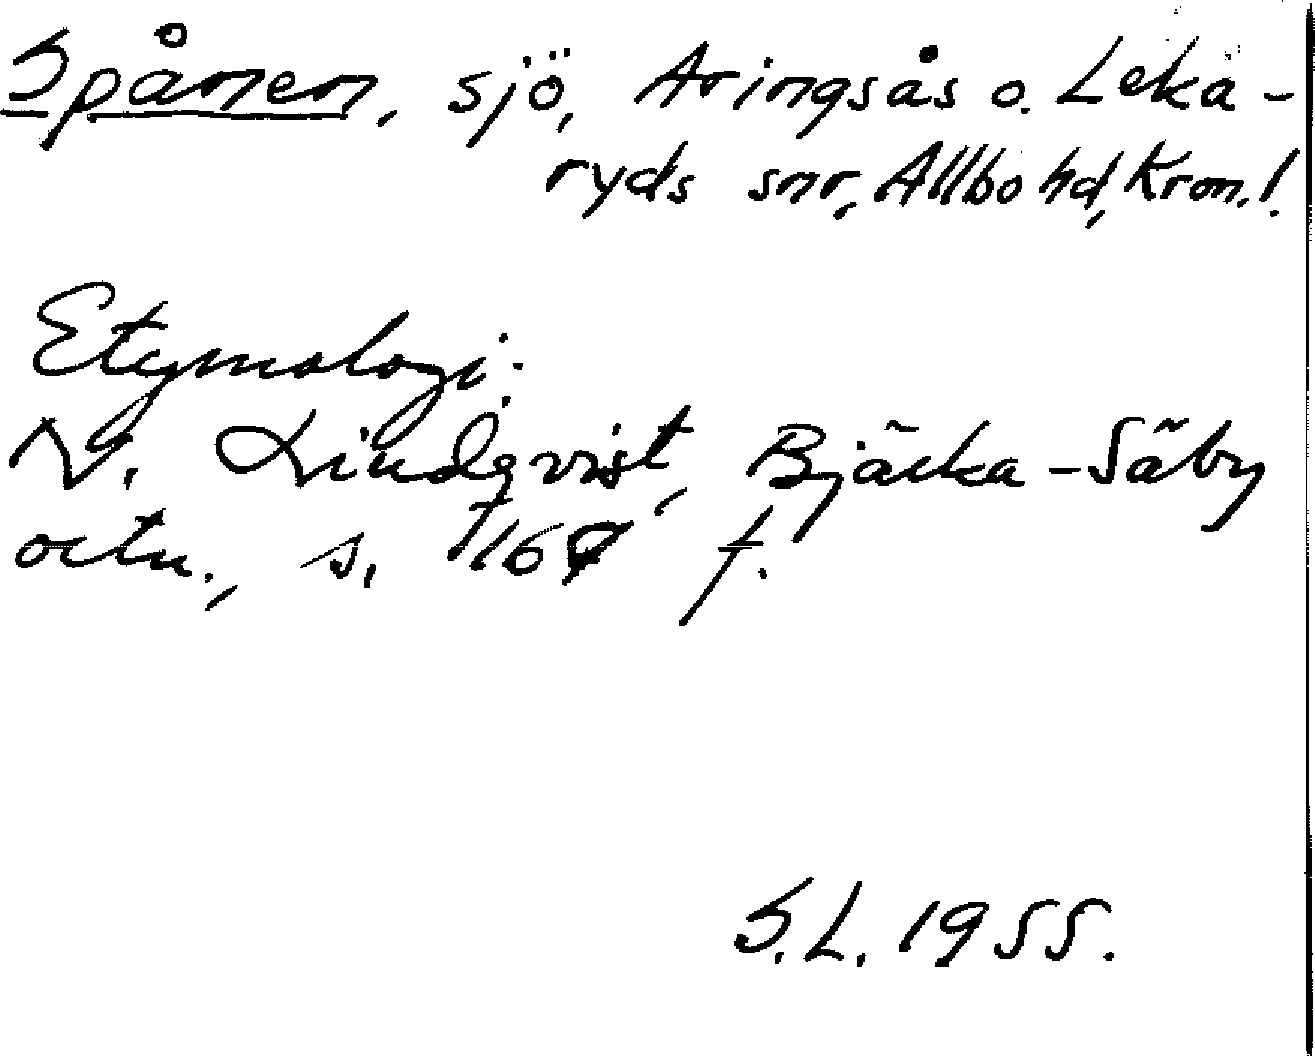 Spånen, sjö, Aringsås o. Leka-
ryds snr, Allbo hd, Kron.l.
Etymologi:
N. Lindqvist, Bjärka-Säby
ortn., s. 167 f.
S.L. 1955.